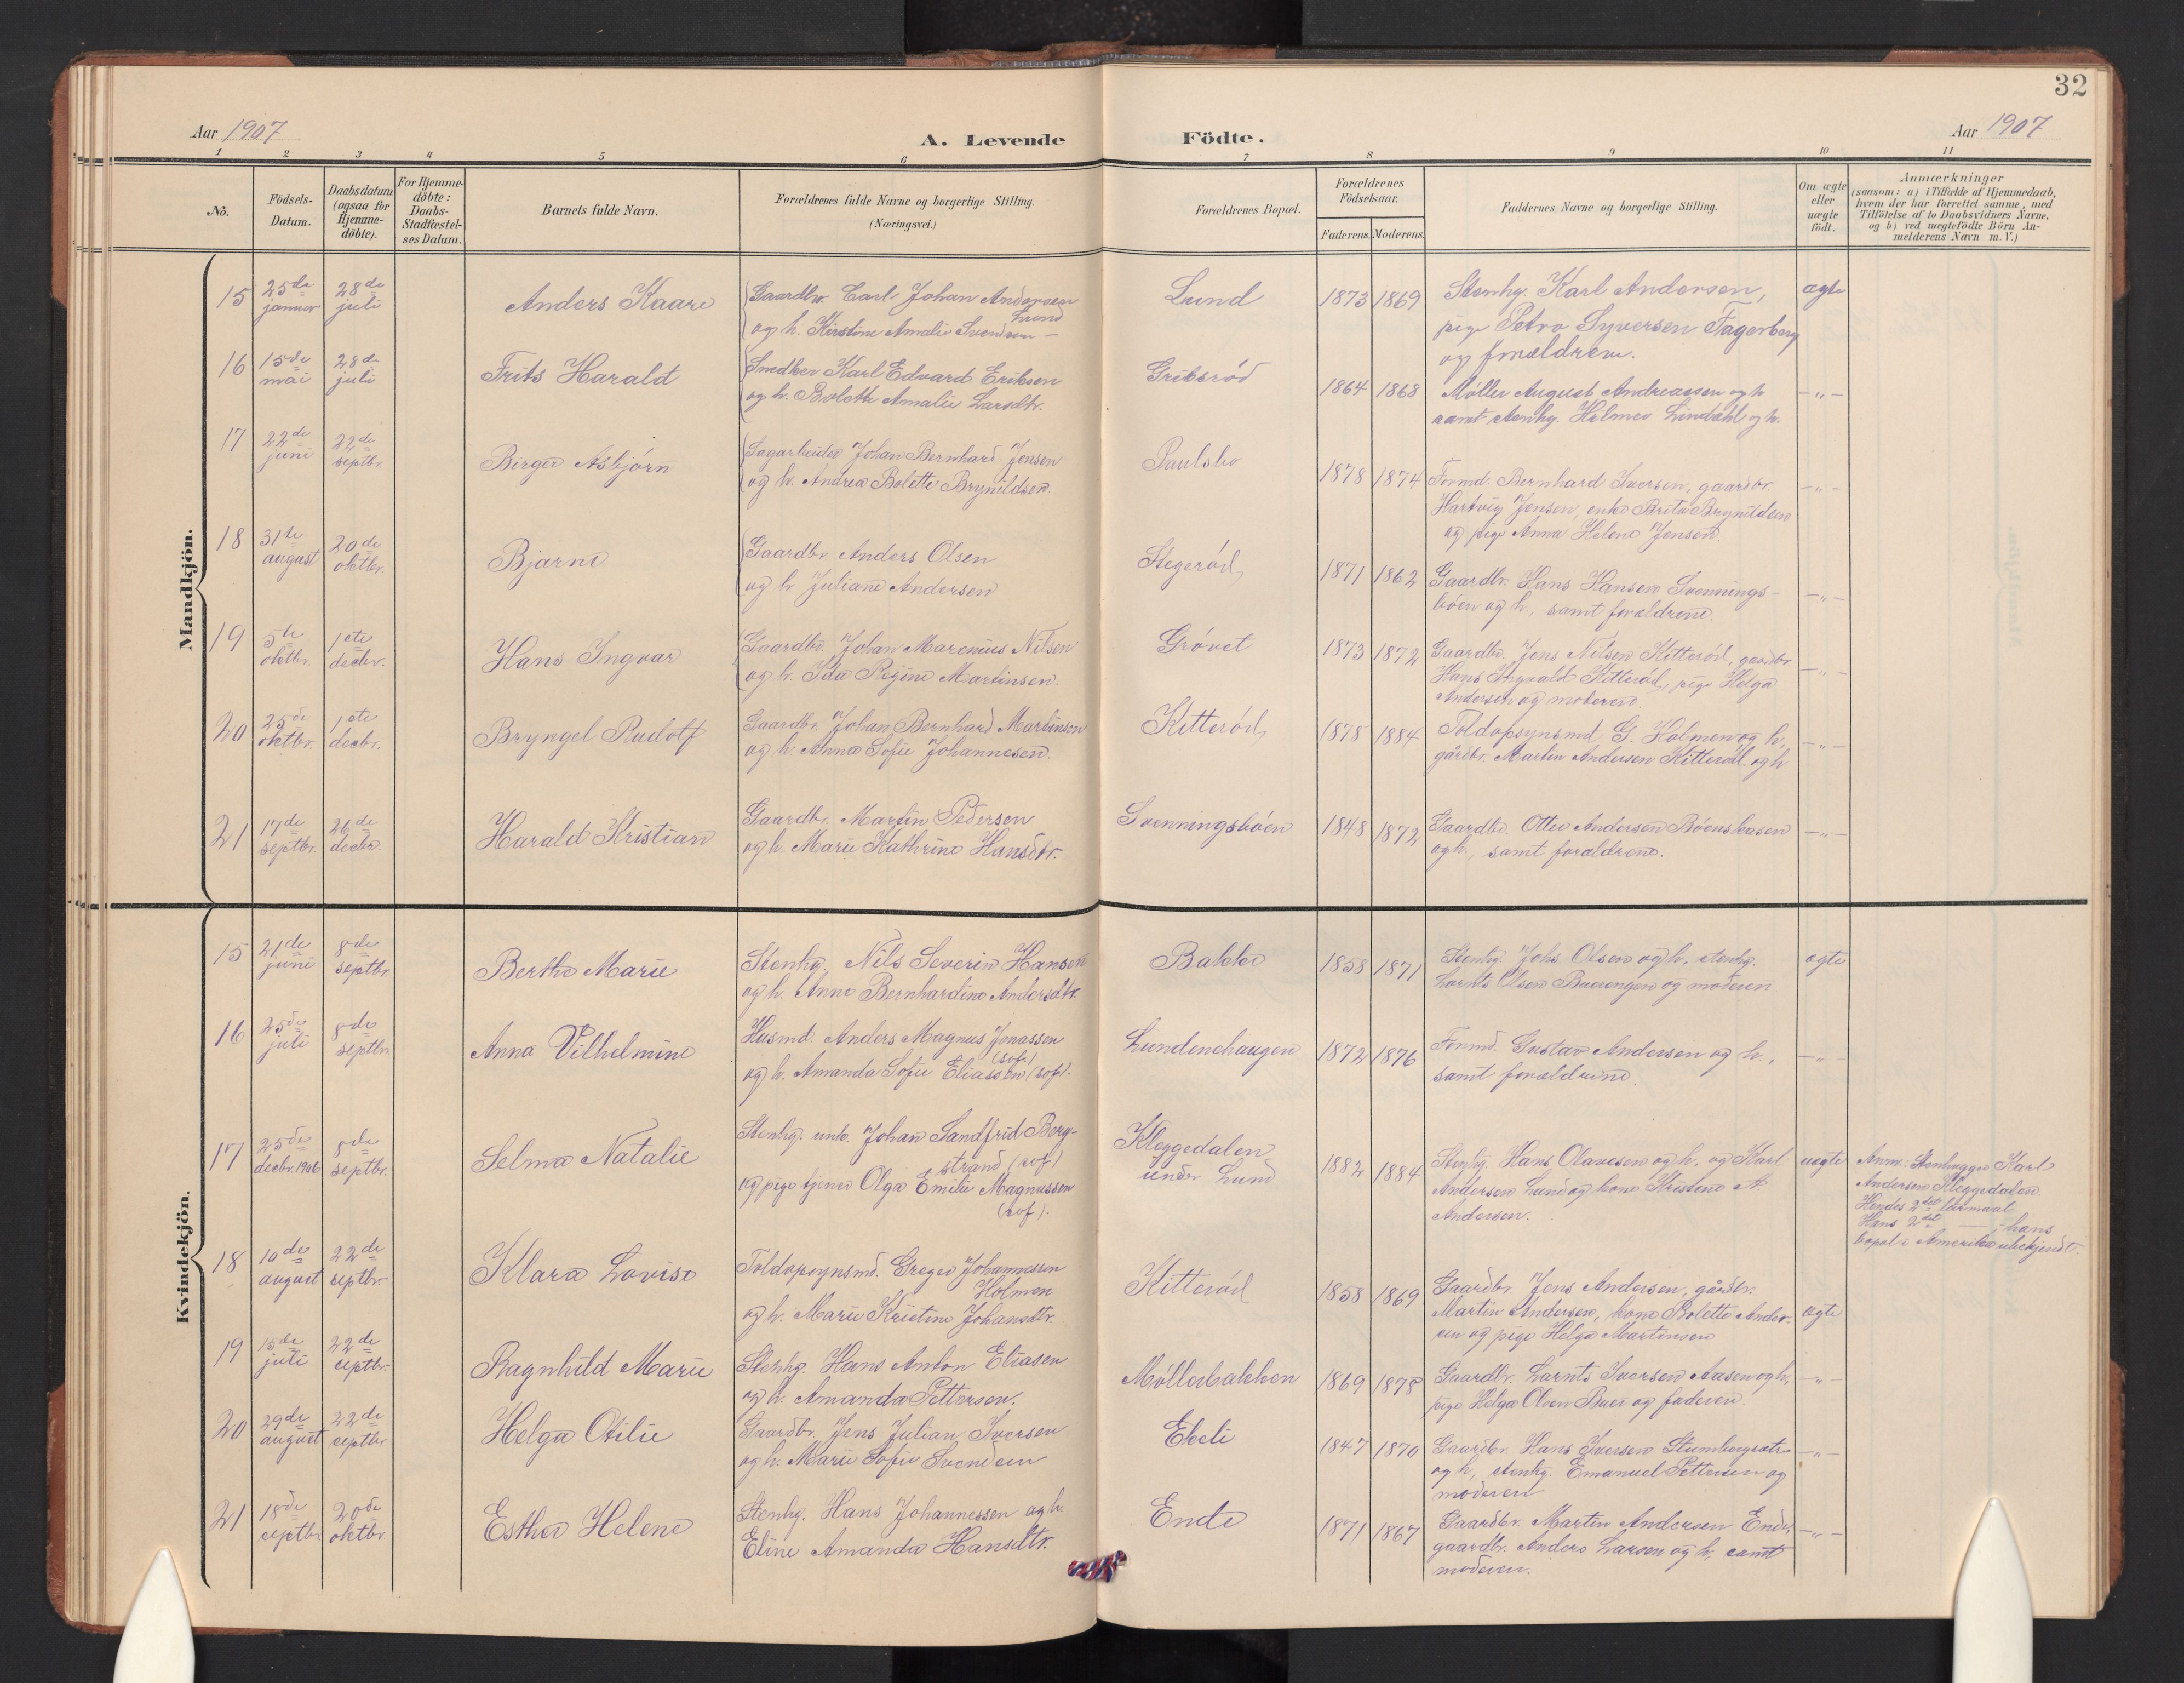 32
Aar 1907
A. Levende Födte.
Aar 1907
1 2 3 4 5 6 7 8 9 10 11
No.
Födsels-
Datum.
Daabsdatum
(ogsaa for
Hjemme-
döbte).
For Hjemme-
döbte:
Daabs-
Stadfæstel-
ses Datum.
Barnets fulde Navn.
Forældrenes fulde Navne og borgerlige Stilling.
(Næringsvei.)
Forældrenes Bopæl.
Forældrenes
Födselsaar.
Faderens. Moderens.
Faddernes Navne og borgerlige Stilling.
Om ægte
eller
uægte
födt.
Anmærkninger
(saasom: a) i Tilfælde af Hjemmedaab,
hvem der har forrettet samme, med
Tilföielse af to Daabsvidners Navne.
og b) ved uægtefödte Börn An-
melderens Navn m. V.)
Mandkjön.
15 25de januar 28de juli
Anders Kaare
Gaardbr. Carl Johan Andersen
Lund
og h. Kirstine Amalie Svendsen
Lund
1873 1869
Stenhg. Karl Andersen,
pige Petra Syversen Fagerberg
og forældrene.
ægte
16 15de mai 28de juli
Frits Harald
Smedker Karl Edvard Eriksen
og h. Bolette Amalie Larsdtr.
Gribsröd
1864 1868
Møller August Andreassen og h
samt stenhg. Hilmer Lindahl og h.
-"-
17 22de juni 22de septbr.
Birger Asbjörn
Sagarbeider Johan Bernhard Jensen
og h. Andrea Bolette Brynildsen.
Paulsbo
1878 1874
Formd. Bernhard Iversen, gaardbr.
Hartvig Jensen, enke Brita Brynildsen
og pige Anna Helene Jensen.
-"-
18 31te august 20de oktbr.
Bjarne
Gaardbr. Anders Olsen
og h. Juliane Andersen
Stegeröd
1871 1862
Gaardbr. Hans Hansen Svennings-
böen og h, samt forældrene.
-"-
19 5te oktbr. 1ste decbr.
Hans Ingvar
Gaardbr. Johan Marenius Nilsen
og h. Ida Regine Martinsen.
Grövet
1873 1872
Gaardbr. Jens Nilsen Kitteröd, gaardbr.
Hans Ingvald Kitteröd, pige Helga
Andersen og moderen.
-"-
20 25de oktbr. 1ste decbr.
Bryngel Rudolf
Gaardbr. Johan Bernhard Martinsen
og h. Anna Sofie Johannesen.
Kitteröd
1878 1884
Toldopsynsmd G. Holmen og h,
gårdbr. Martin Andersen Kitteröd og h
-"-
21 17de septbr. 26de decbr.
Harald Kristian
Gaardbr. Martin Pedersen
og h. Marie Kathrine Hansdtr.
Svenningsböen
1848 1872
Gaardbr. Otter Andersen Böenskasen
og h., samt forældrene.
-"-
Kvindekjön.
15 21de juni 8de septbr.
Berthe Marie
Stenhg. Nils Severin Hansen
og h. Anne Bernhardine Andersdtr.
Bakke
1858 1871
Stenhg. Johs. Olsen og h, stenhg.
Larnts Olsen Buerengen og moderen
ægte
16 25de juli 8de septbr.
Anna Vilhelmine
Husmd. Anders Magnus Jonassen
(sof.)
og h. Amanda Sofie Eliassen (sof).
Lundenehaugen
1872 1876
Formd. Gustav Andersen og h,
samt forældrene.
-"-
17 25de decbr. 1906 8de septbr.
Selma Natalie
Stenhg. unk. Johan Sandfrid Berg-
strand (sof)
og pige tjener Olga Emilie Magnussen
(sof).
Kleggedalen
under Lund
1882 1884
Stenhg. Hans Olavesen og h. og Karl
Andersen Lund og kone Kristine A.
Andersen.
uægte
Anm.: Stenhugger Karl
Andersen Kleggedalen.
Hendes 2det leiermaal
Hans 2det — " — ; hans
bopæl i Amerika ubekjendt.
18 10de august 22de septbr.
Klara Lovise
Toldopsynsmd. Greger Johannessen
Holmen
og h. Marie Kristine Johansdtr.
Kitteröd
1858 1869
Gaardbr. Jens Andersen, gårdbr.
Martin Andersen, kone Bolette Ander-
sen og pige Helga Martinsen
ægte
19 15de juli 22de septbr.
Ragnhild Marie
Stenhg. Hans Anton Eliasen
og h. Amanda Pettersen.
Möllerbakken
1869 1878
Gaardbr. Larnts Iversen Aasen og h,
pige Helga Olsen Buer og faderen.
-"-
20 29de august 22de septbr.
Helga Otilie
Gaardbr. Jens Julian Iversen
og h. Marie Sofie Svendsen
Ekeli
1847 1870
Gaardbr. Hans Iversen Stumbergsætr
og h, stenhg. Emanuel Pettersen og
moderen
-"-
21 18de septbr. 20de oktbr.
Esther Helene
Stenhg. Hans Johannessen og h.
Eline Amanda Hansdtr.
Ende
1871 1867
Gaardbr. Martin Andersen Ende,
gaardbr. Anders Larsen og h, samt
moderen.
-"-